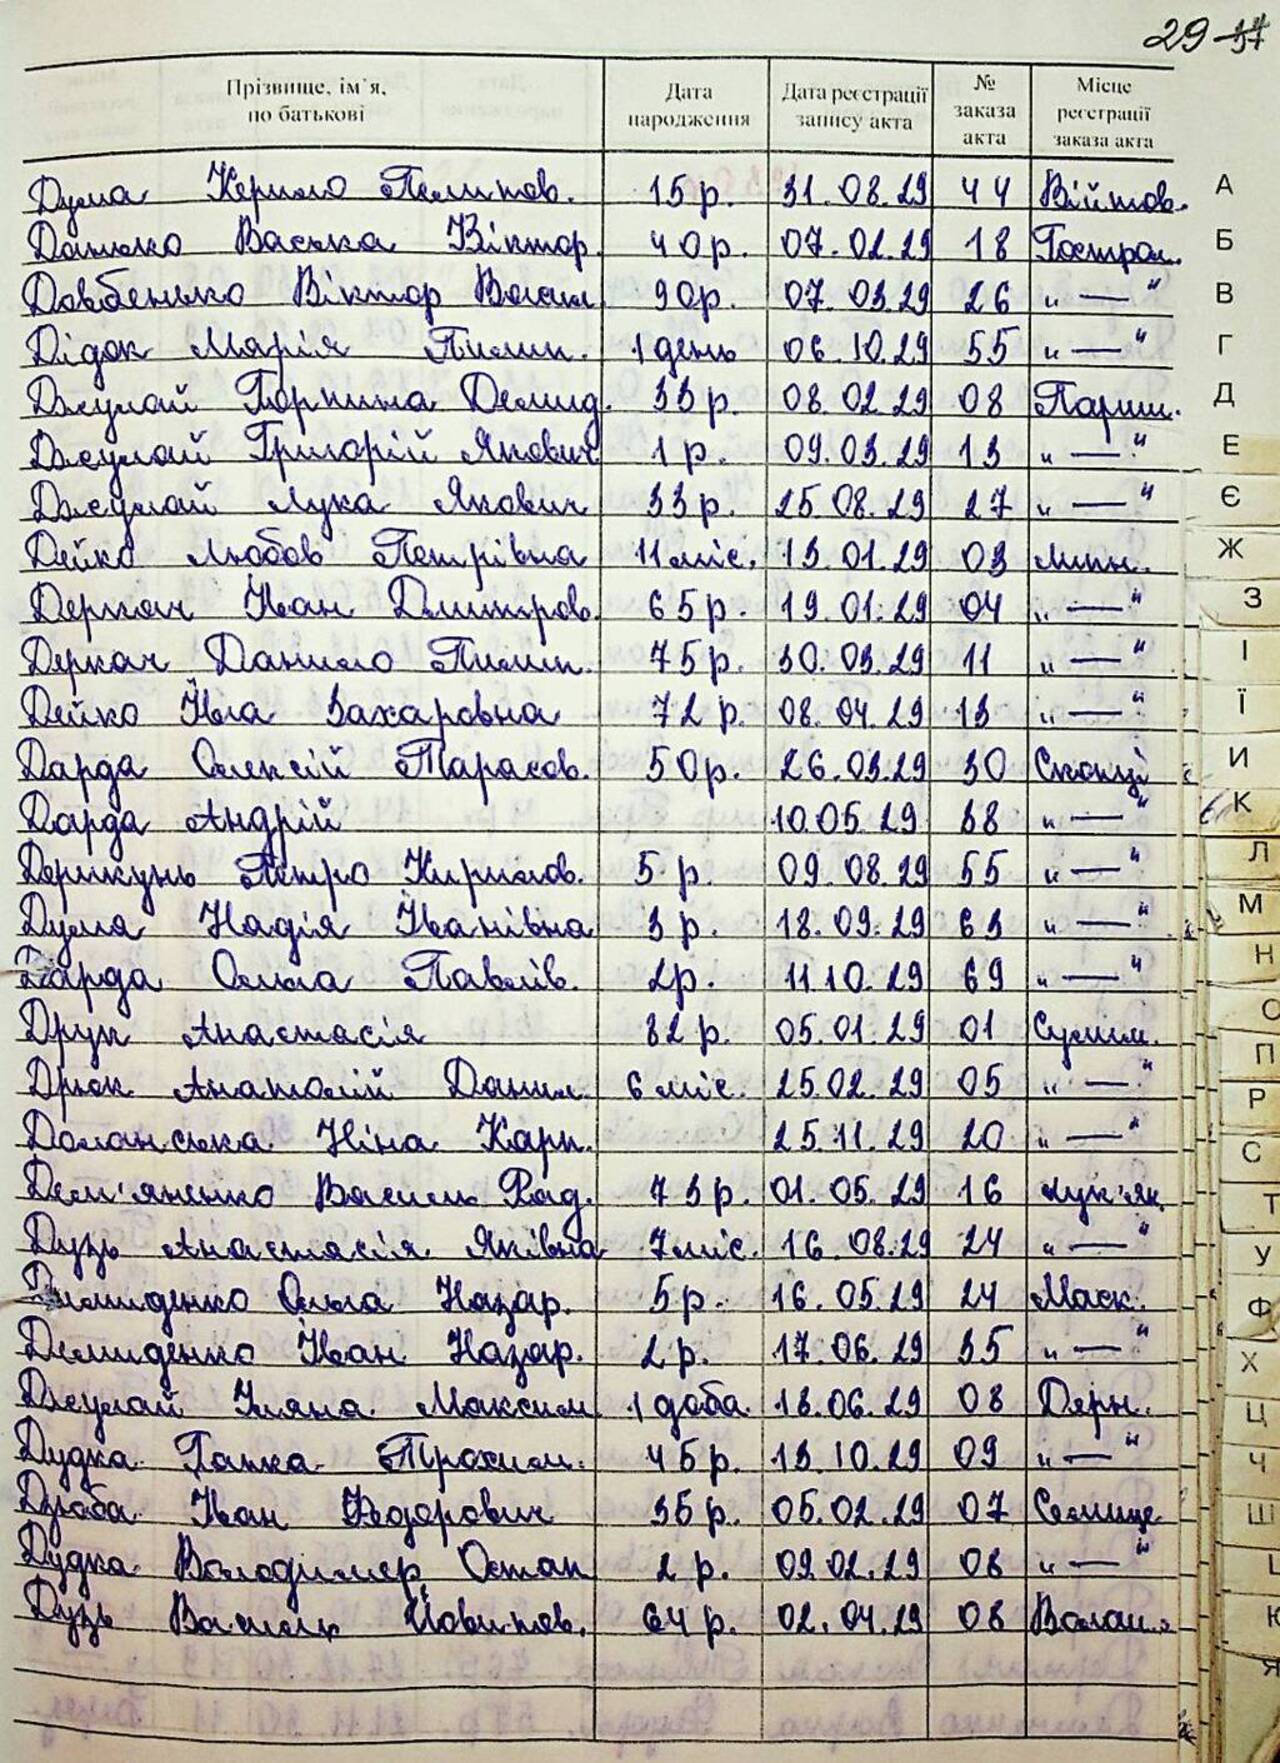 29
Прізвище, ім'я, по батькові Дата народження Дата реєстрації запису акта № заказа акта Місце реєстрації заказа акта
Дума Кирило Пилипов. 15 р. 31.08.29 44 Війтов.
Данько Васька Віктор. 40р. 07.02.29 18 Гострол.
Довбенько Віктор Васил. 90р. 07.03.29 26 " — "
Дідок Марія Пилип. 1 день 06.10.29 55 " — "
Джулай Горпина Демид. 33 р. 08.02.29 08 Париш.
Джулай Григорій Якович 1 р. 09.03.29 13 " — "
Джулай Лука Якович 33р. 25.08.29 27 " — "
Дейко Любов Петрівна 11 міс. 13.01.29 03 Липн.
Деркач Іван Дмитров. 65р. 19.01.29 04 " — "
Деркач Данило Пилип. 75р. 30.03.29 11 " — "
Дейко Ївга Захаровна 72 р. 08.04.29 13 " — "
Дарда Олексій Тарасов. 50р. 26.03.29 30 Скопці
Дарда Андрій 10.05.29 38 " — "
Дерикунь Петро Кирилов. 5 р. 09.08.29 55 " — "
Дума Надія Іванівна 3 р. 18.09.29 63 " — "
Дарда Ольга Павлів. 2р. 11.10.29 69 " — "
Друк Анастасія 82 р. 05.01.29 01 Сулим.
Дрюк Анатолій Данил. 6 міс. 25.02.29 05 " — "
Долонська Ніна Карп. 25.11.29 20 " — "
Дем'яненко Василь Рад. 73р. 01.05.29 16 Лук'ян.
Дузь Анастасія Яківна 7 міс. 16.08.29 24 " — "
Демиденко Ольга Назар. 5р. 16.05.29 24 Маск.
Демиденко Іван Назар. 2 р. 17.06.29 35 " — "
Джулай Уляна Максим. 1 доба 18.06.29 08 Дерн.
Дудка Ганка Трохим. 45р. 13.10.29 09 " — "
Дзюба Іван Федорович 35р. 05.02.29 07 Селище
Дудка Володимер Остап 2 р. 09.02.29 08 " — "
Дузь Василь Йовипов. 64 р. 02.04.29 08 Волош.
А
Б
В
Г
Д
Е
Є
Ж
З
І
Ї
И
К
Л
М
Н
О
П
Р
С
Т
У
Ф
Х
Ц
Ч
Ш
К
Я